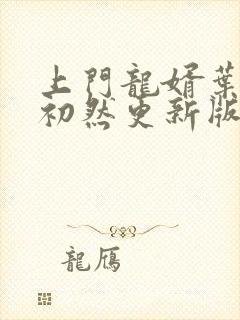 上門龍婿葉
初然更新版
龍鴈